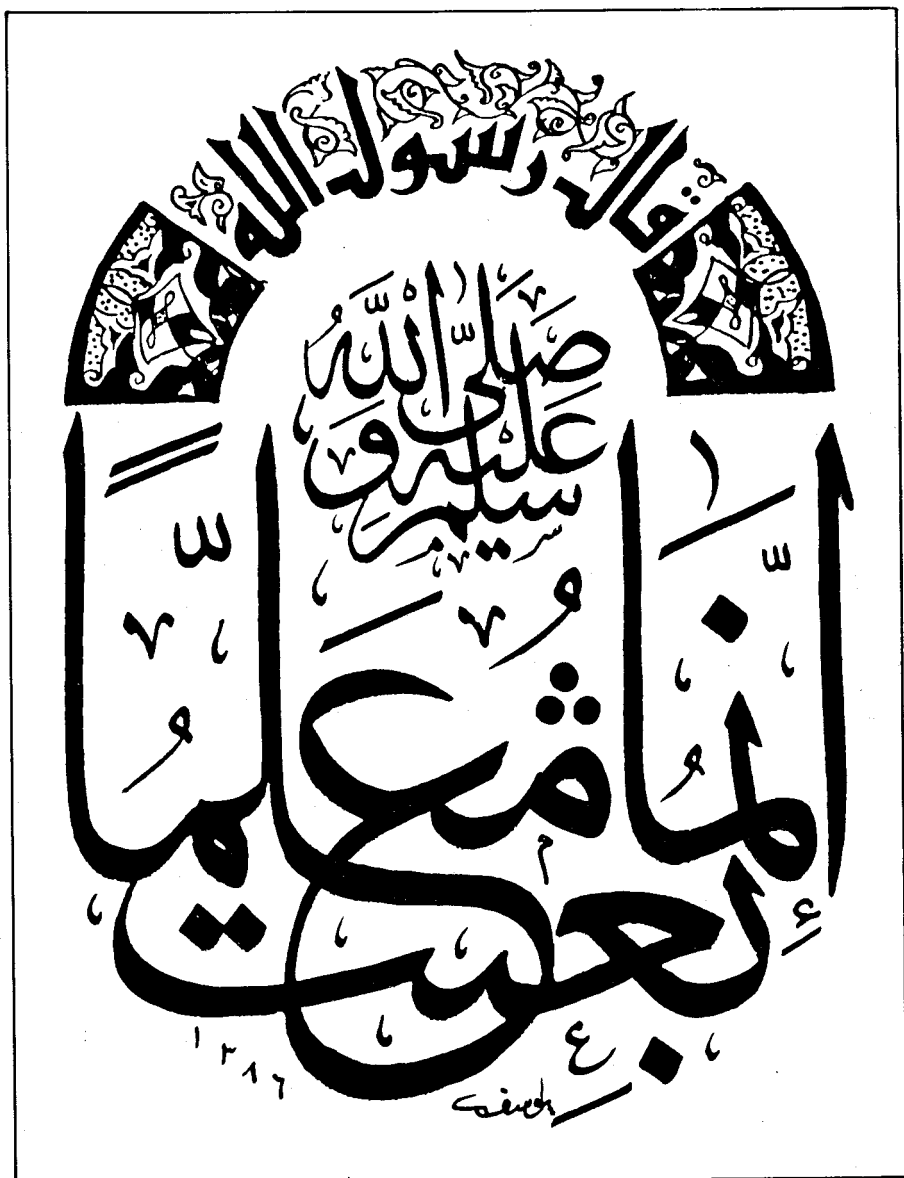 قال رسول الله
صَلَّى اللَّهُ
عَلَيْهِ وَ
سَلَّمَ
إِنَّمَا
بُعِثْتُ
مُعَلِّمًا
١٣٨٦